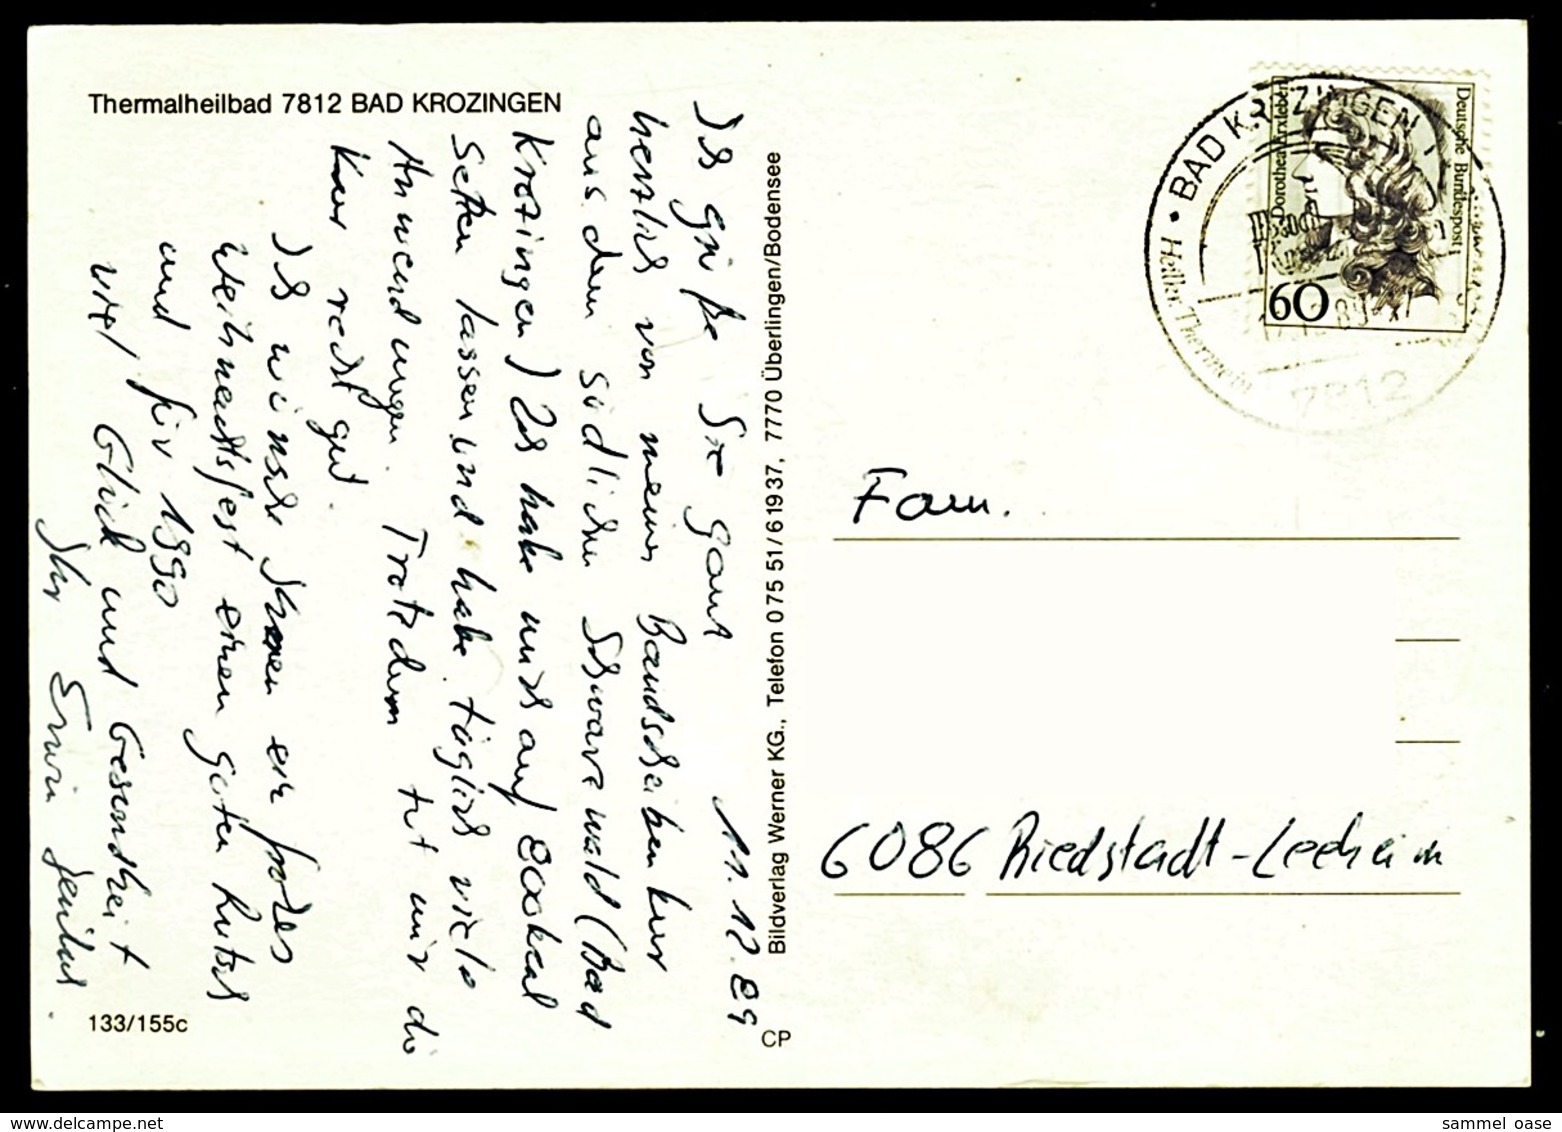 Thermalheilbad 7812 BAD KROZINGEN
11.12.89
Ich grüße Sie ganz
herzlich von meiner Bandscheibenkur
aus dem südlichen Schwarzwald (Bad
Krozingen) Ich habe mich auf 800 kcal
setzen lassen und habe täglich viele
Anwendungen. Trotzdem tut mir die
Kur recht gut.
Ich wünsche Ihnen ein frohes
Weihnachtsfest einen guten Rutsch
und für 1990
viel Glück und Gesundheit
Ihr Erwin
133/155c
Bildverlag Werner KG., Telefon 0 75 51/6 19 37, 7770 Überlingen/Bodensee
CP
BAD KROZINGEN
7812
Deutsche Bundespost
Dorothea Erxleben
60
Fam.
6086 Riedstadt-Leeheim
sammel_oase